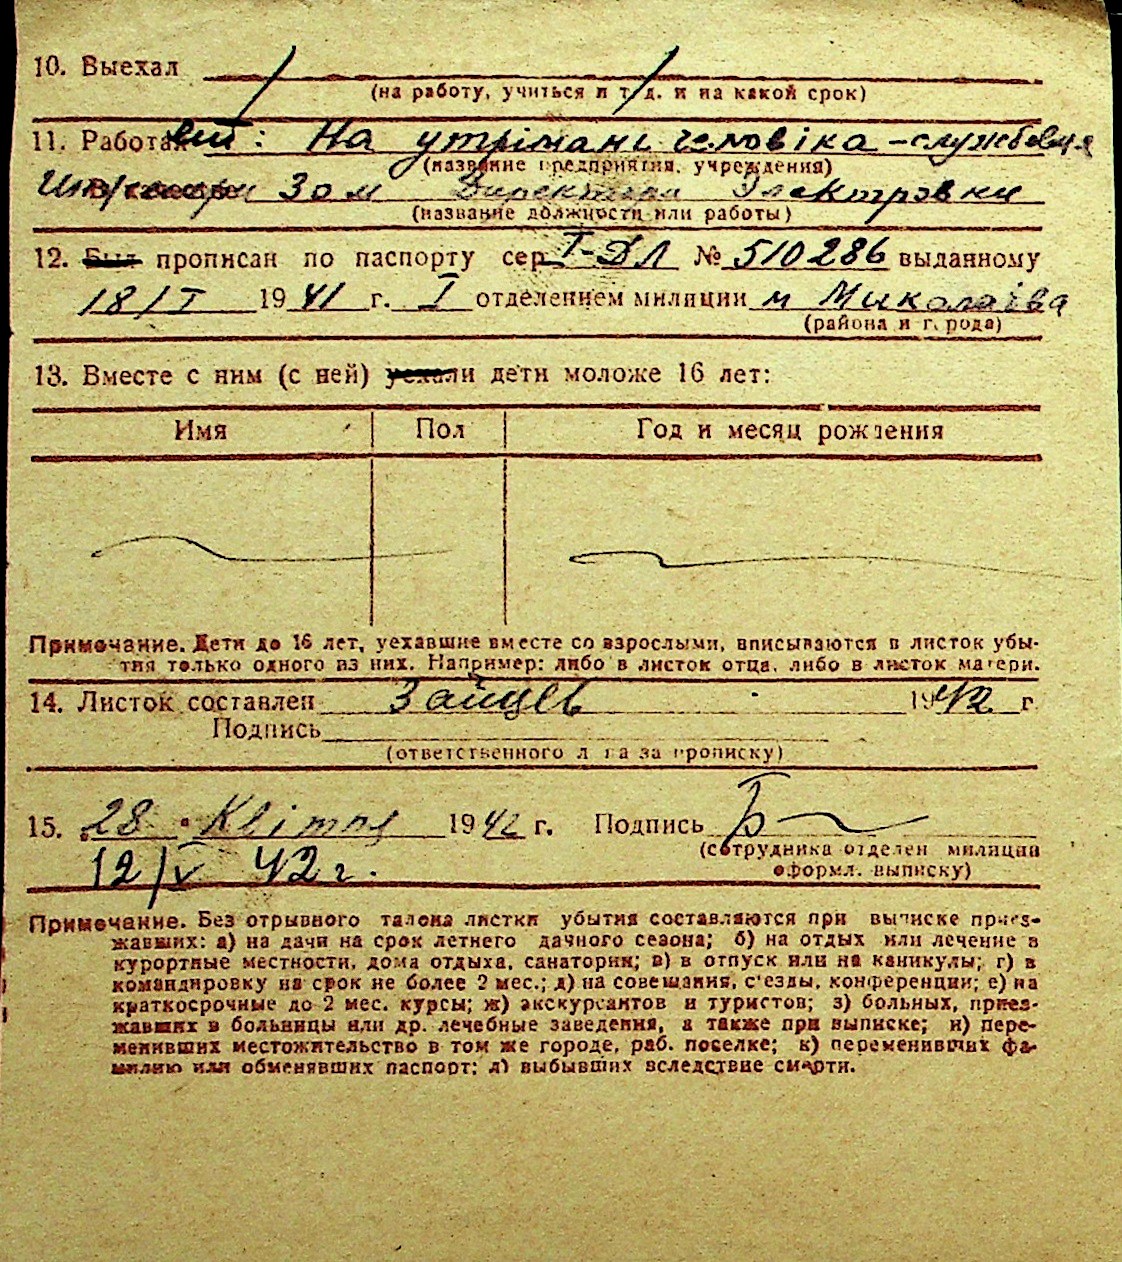 10. Выехал
(на работу, учиться и т. д. и на какой срок)
11. Работа : На утрімані человіка - службовця
(название предприятия, учреждения)
Зам Директора Електровки
(название должности или работы)
12. Был прописан по паспорту сер. I-ДЛ № 510286 выданному
18/I 1941 г. I отделением милиции м Миколаїва
(района и города)
13. Вместе с ним (с ней) уехали дети моложе 16 лет:
Имя Пол Год и месяц рождения
Примечание. Дети до 16 лет, уехавшие вместе со взрослыми, вписываются в листок убы-
тия только одного из них. Например: либо в листок отца, либо в листок матери.
14. Листок составлен Зайцев 1942 г
Подпись
(ответственного лица за прописку)
15. „28“ 1942 г. Подпись
(сотрудника отделен милиции
12/V 42 г. оформл. выписку)
Примечание. Без отрывного талона листки убытия составляются при выписке приез-
жавших: а) на дачи на срок летнего дачного сезона; б) на отдых или лечение в
курортные местности, дома отдыха, санатории; в) в отпуск или на каникулы; г) в
командировку на срок не более 2 мес.; д) на совещания, с'езды, конференции; е) на
краткосрочные до 2 мес. курсы; ж) экскурсантов и туристов; з) больных, приез-
жавших в больницы или др. лечебные заведения, а также при выписке; и) пере-
менивших местожительство в том же городе, раб. поселке; к) переменивших фа-
милию или обменявших паспорт; л) выбывших вследствие смерти.